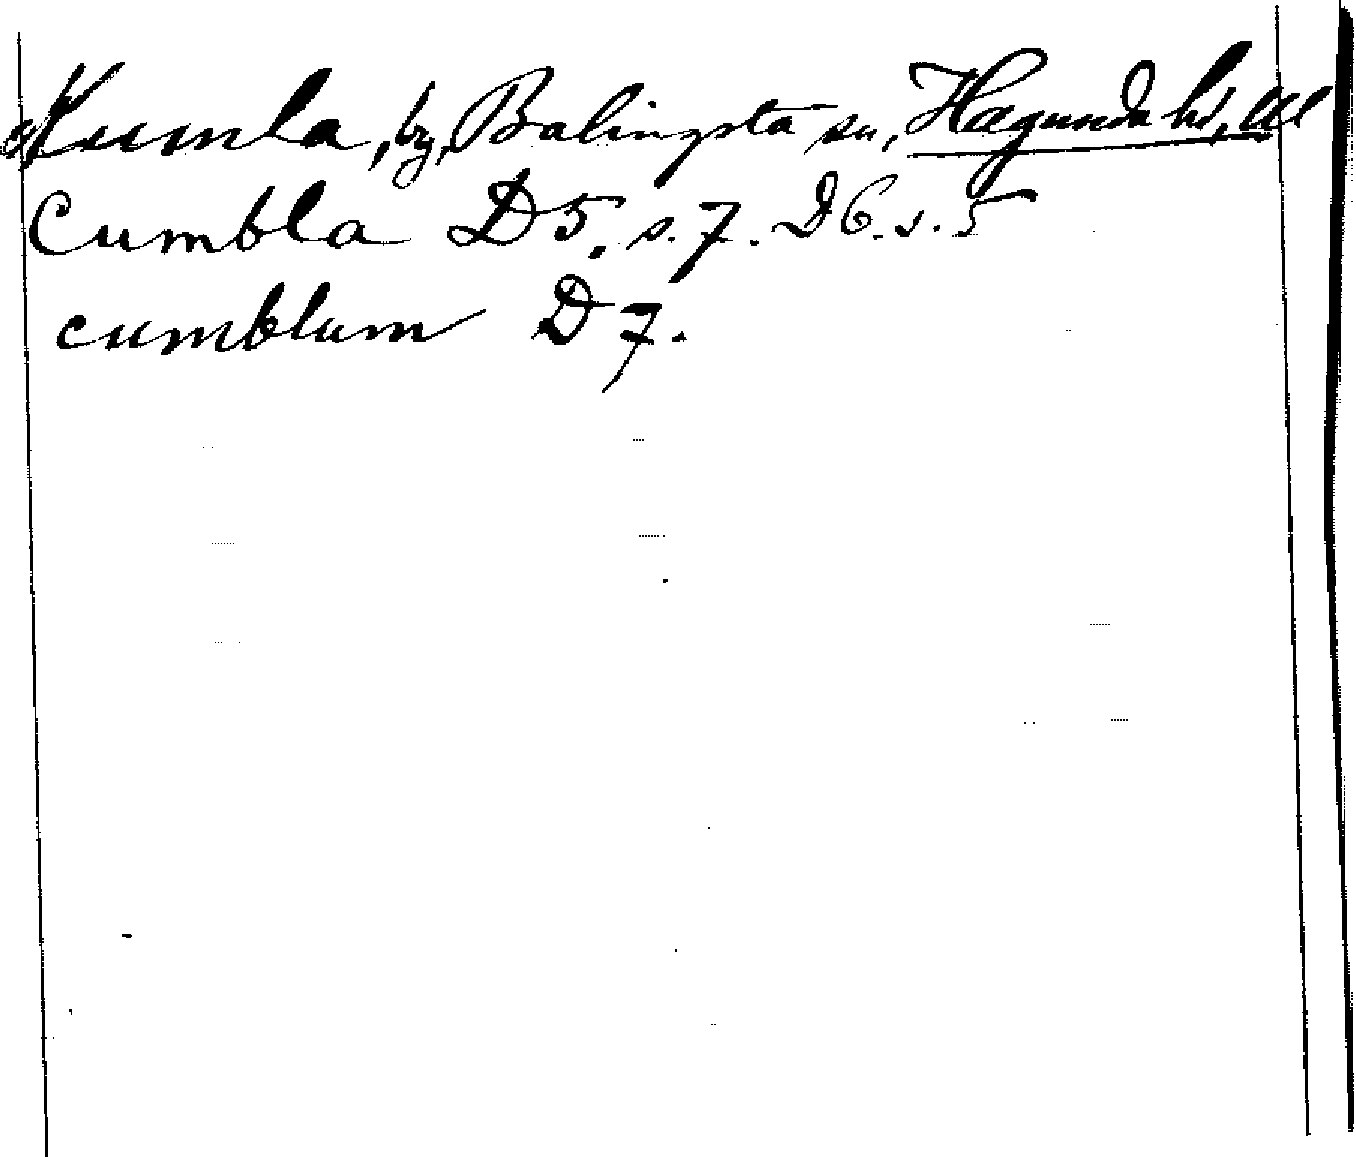 Kumla, by, Balingsta sn, Hagunda hd, Ul
Cumbla D5. s. 7. D6. s. 5
cumblum D7.